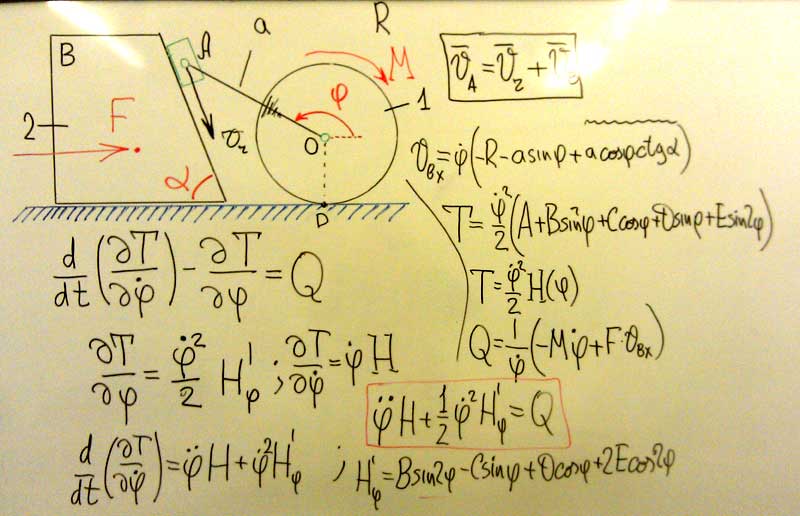 B
A
a
R
M
φ
1
2
F
𝒱r
O
α
D
V̅_A = V̅_r + V̅
𝒱_Bx = φ̇(-R - a sinφ + a cosφ ctg α)
T = φ̇²/2 (A + B sin²φ + C cosφ + D sinφ + E sin2φ)
T = φ̇²/2 H(φ)
Q = 1/φ̇ (-Mφ̇ + F·𝒱_Bx)
d/dt (∂T/∂φ̇) - ∂T/∂φ = Q
∂T/∂φ = φ̇²/2 H'_φ ; ∂T/∂φ̇ = φ̇ H
φ̈ H + 1/2 φ̇² H'_φ = Q
d/dt (∂T/∂φ̇) = φ̈ H + φ̇² H'_φ ; H'_φ = B sin2φ - C sinφ + D cosφ + 2E cos2φ